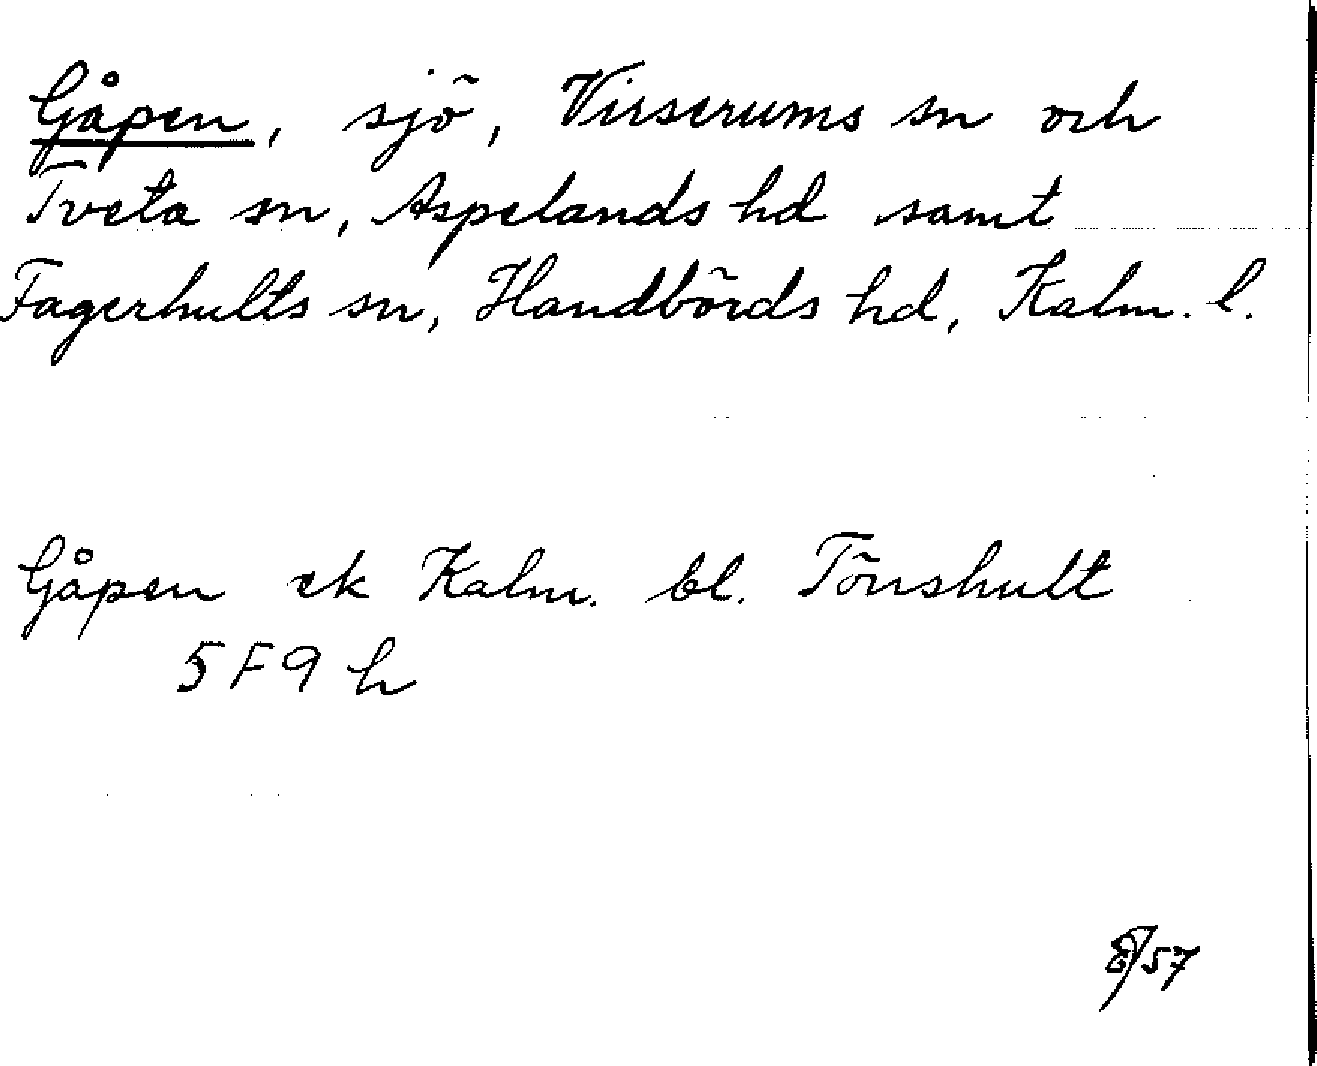 Gåpen, sjö, Virserums sn och
Tveta sn, Aspelands hd samt
Fagerhults sn, Handbörds hd, Kalm. l.
Gåpen ek Kalm. bl. Tönshult
5F9h
/57